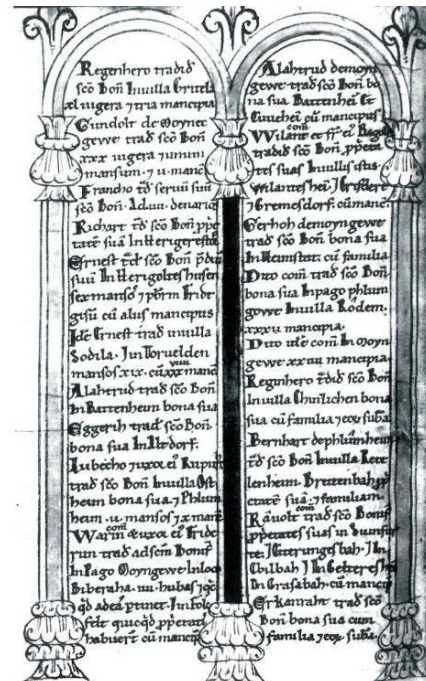 Regenhero tradid
sco Bon Inuilla Griezla
xl iugera ⁊ tria mancipia
Gundolt de Moynec
gewe trad sco Bon
xxx iugera ⁊ unum
mansum ⁊ u manc
Francho td seruu suu
sco Bon
denario
Richart td sco Bon ppe
tate sua In Heriger
Ernest td sco Bon pdiu
suu In Herigolteshusen
sex manso ⁊ pbrm Fride
gisu cu aliis mancipiis
Ide Ernest trad inuilla
Sodila In Toruelden
mansos xix cu xxx manc
Alahtrud trad sco Bon
In Battenheim bona sua
Eggerih trad sco Bon
bona sua In Altdorf
Iubecho ⁊ uxor ei
trad sco Bon Inuilla Ost
heim bona sua ⁊ Phlum
heim u mansos ⁊ x manc
Warin com ⁊ uxor ei Fride
run trad ad scm Bonif
In Pago Moyngewe In loco
Biberaha iiii hubas
qd adea ptinet In
felt quicqd ppetati
habuert cu mancip
Alahtrud demoyn
gewe trad sco Bon bo
na sua Battenhei Et
cu mancipiis
Wilant com et fr ei
tradid sco Bon ppeta
tes suas Inuillis istis
Wilanteshei
⁊ Gremesdorf cu manc
Gerhoh demoyngewe
trad sco Bon bona sua
In Heimstat cu familia
Dito com trad sco Bon
bona sua Inpago phlum
gowe Inuilla Rodem
xxxu mancipia
Dito com In Moyn
gewe xx mancipia
Reginhero tdid sco Bon
Inuilla Chunlichen bona
sua cu familia ⁊ eor suba
Bernhart dephlumheim
td sco Bon Inuilla
lenheim Breitenbah pp
etate sua ⁊ familiam
Rauolt com trad sco Bonif
ppetates suas in
⁊ In
⁊ In
In Grasabah cu mancip
Erkanraht trad sco
Bon bona sua cum
familia ⁊ eor suba